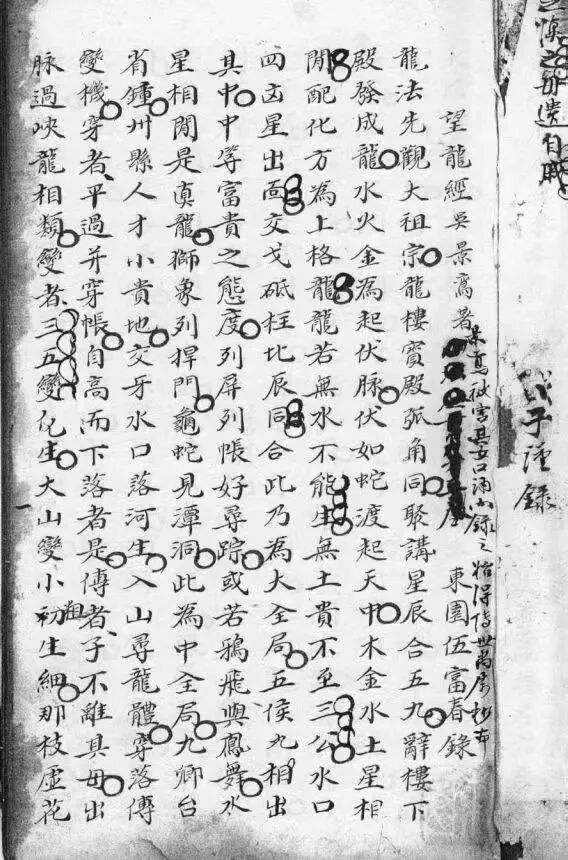 望龍經吳景鸞著 東園伍富春錄
龍法先觀大祖宗龍樓寶殿弧角同聚講星辰合五九辭樓下
殿發成龍水火金為起伏脉伏如蛇渡起天中木金水土星相
間配化方為上格龍龍若無水不能生無土貴不至三公水口
四凶星出面交戈砥柱北辰同合此乃為大全局五侯九相出
其中中等富貴之態度列屏列帳好尋踪或若鴉飛與鳳舞水
星相間是真龍獅象列捍門龜蛇見潭洞此為中全局九卿台
省鍾州縣人才小貴地交牙水口落河生入山尋龍體穿落傳
變機穿者平過并穿帳自高而下落者是傳者子不離其母出
脉過峽龍相類變者三五變化生大山變小粗生細那枝虛花
子謹錄